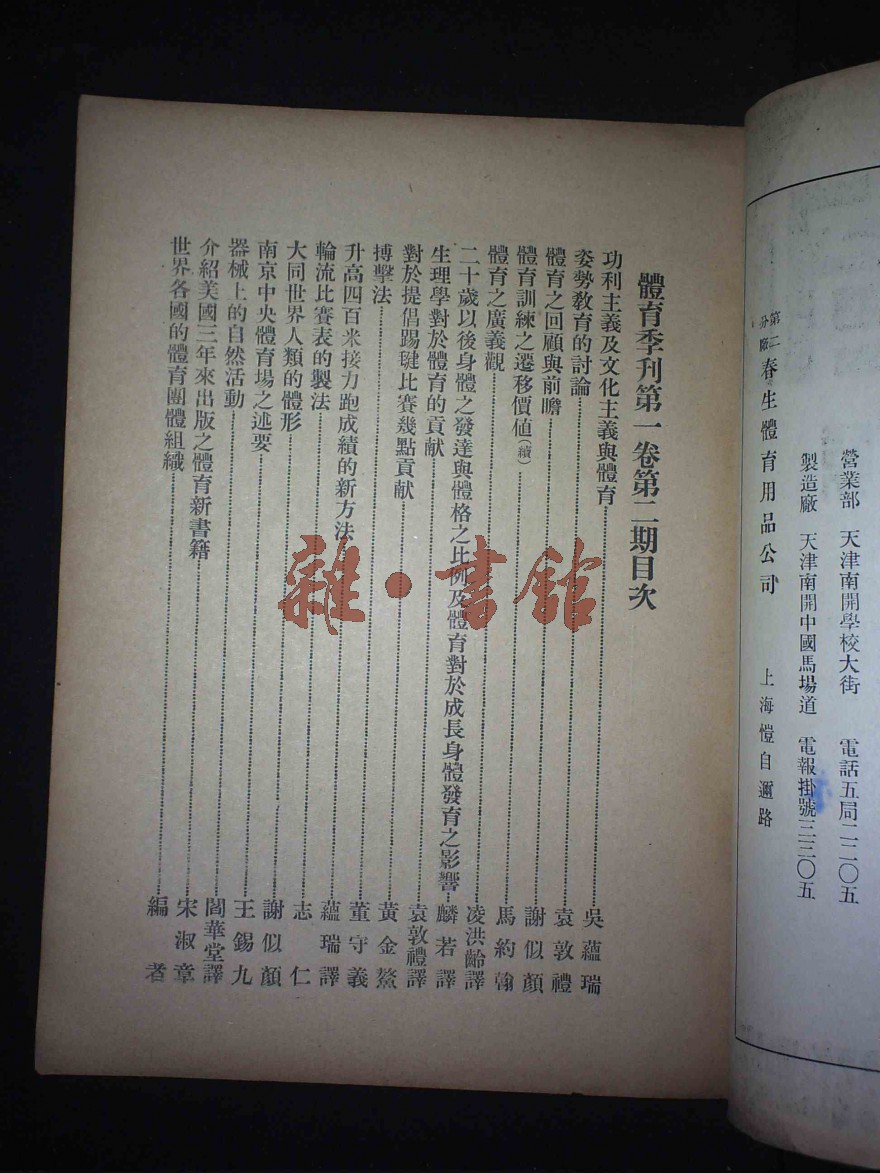 營業部 天津南開學校大街 電話五局二二〇五
製造廠 天津南開中國馬場道 電報掛號三二〇五
第二分廠 春生體育用品公司 上海愷自邇路
體育季刊第一卷第二期目次
功利主義及文化主義與體育 吳蘊瑞
姿勢教育的討論 袁敦禮
體育之回顧與前瞻 謝似顏
體育訓練之遷移價值(續) 馬約翰
體育之廣義觀 凌洪齡譯
二十歲以後身體之發達與體格之比例及體育對於成長身體發育之影響 麟若譯
生理學對於體育的貢献 袁敦禮譯
對於提倡踢毽比賽幾點貢献 黃金鰲
搏擊法 董守義
升高四百米接力跑成績的新方法 蘊瑞譯
輪流比賽表的製法 志仁
大同世界人類的體形 謝似顏
南京中央體育場之述要 王錫九
器械上的自然活動 閻華堂譯
介紹美國三年來出版之體育新書籍 宋淑章
世界各國的體育團體組織 編者
雜·書館